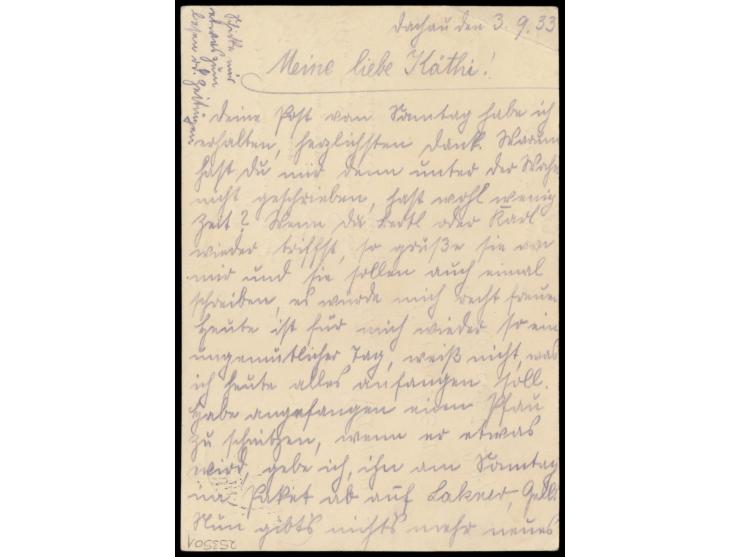 Dachau den 3. 9. 33
Meine liebe Käthi!
Deine Post vom Sonntag habe ich
erhalten, herzlichsten Dank. Warum
hast du mir denn unter der Woche
nicht geschrieben, hast wohl wenig
Zeit? Wenn du Bertl oder Karl
wieder triffst, so grüße sie von
mir und sie sollen auch einmal
schreiben, es würde mich recht freuen
Heute ist für mich wieder so ein
ungemütlicher Tag, weiß nicht, was
ich heute alles anfangen soll.
Habe angefangen einen Pfau
zu schnitzen, wenn er etwas
wird, gebe ich, ihn am Sonntag
im Paket ab auf Lakner,
Nun gibts nichts mehr neues
Schicke mir
etwas zum
lesen od. Zeitungen
253501